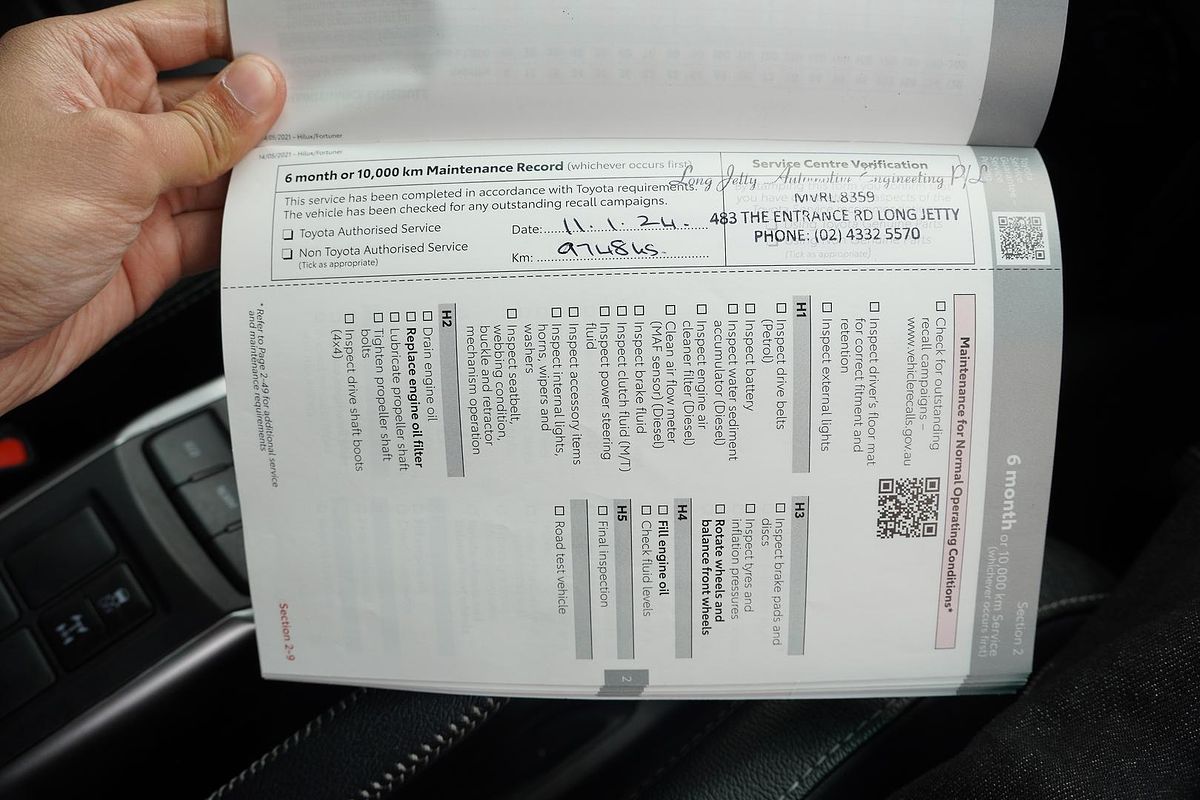 14/05/2021 – Hilux/Fortuner
14/05/2021 – Hilux/Fortuner
6 month or 10,000 km Maintenance Record (whichever occurs first)
This service has been completed in accordance with Toyota requirements.
The vehicle has been checked for any outstanding recall campaigns.
Toyota Authorised Service
Non Toyota Authorised Service
(Tick as appropriate)
Date: 11.1.24.
Km:
Service Centre Verification
Long Jetty Automotive Engineering P/L
MVRL 8359
483 THE ENTRANCE RD LONG JETTY
PHONE: (02) 4332 5570
(Tick as appropriate)
Section 2
6 month or 10,000 km Service
(whichever occurs first)
Maintenance for Normal Operating Conditions*
Check for outstanding
recall campaigns –
www.vehiclerecalls.gov.au
Inspect driver's floor mat
for correct fitment and
retention
Inspect external lights
H1
Inspect drive belts
(Petrol)
Inspect battery
Inspect water sediment
accumulator (Diesel)
Inspect engine air
cleaner filter (Diesel)
Clean air flow meter
(MAF sensor) (Diesel)
Inspect brake fluid
Inspect clutch fluid (M/T)
Inspect power steering
fluid
Inspect accessory items
Inspect internal lights,
horns, wipers and
washers
Inspect seatbelt,
webbing condition,
buckle and retractor
mechanism operation
H2
Drain engine oil
Replace engine oil filter
Lubricate propeller shaft
Tighten propeller shaft
bolts
Inspect drive shaft boots
(4x4)
H3
Inspect brake pads and
discs
Inspect tyres and
inflation pressures
Rotate wheels and
balance front wheels
H4
Fill engine oil
Check fluid levels
H5
Final inspection
Road test vehicle
2
*Refer to Page 2-49 for additional service
and maintenance requirements
Section 2-9